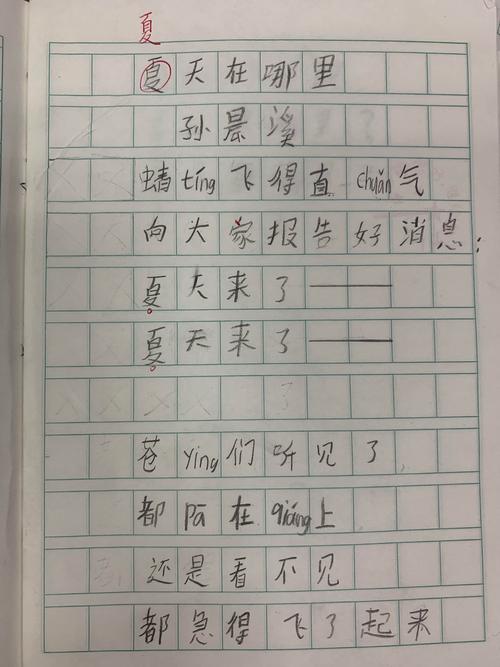 夏
夏天在哪里
孙晨溪
蜻tíng飞得直chuǎn气
向大家报告好消息:
夏天来了——
夏天来了——
苍ying们听见了
都pā在qiáng上
还是看不见
都急得飞了起来